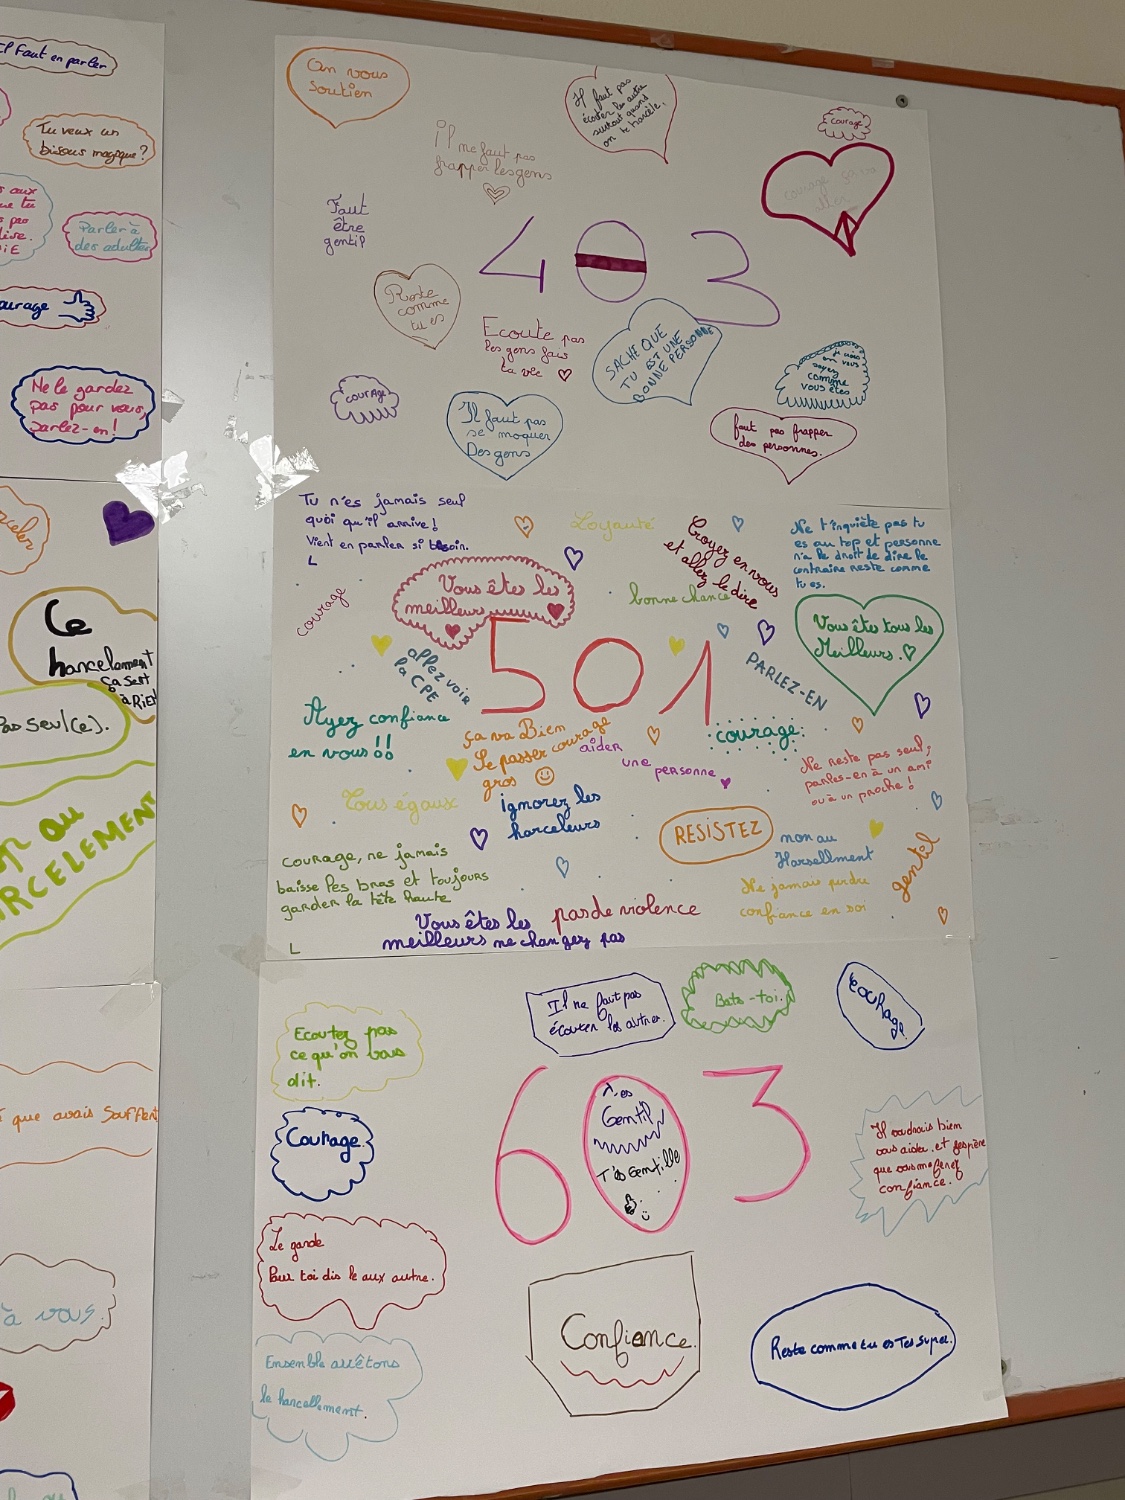 Il faut en parler
Tu veux un
bisous magique ?
Parler à
des adultes
Ne le gardez
pas pour vous,
parlez-en !
Ce
harcelement
ça sert
à RiEN
Pas seul(e).
que avais souffert
à vous.
On vous
soutien
Il faut pas
écouter les autre
surtout quand
on te harcèle.
courage
il ne faut pas
frapper les gens
courage ça va
aller
Faut
être
gentil
403
Reste
comme
tu es
Ecoute pas
les gens fais
ta vie
SACHE QUE
TU EST UNE
BONNE PERSONNE
comme
vous êtes
courage
Il faut pas
se moquer
Des gens
faut pas frapper
des personnes.
Tu n'es jamais seul
quoi qu'il arrive !
Vient en parler si besoin.
Loyauté
Croyez en vous
et allez le dire
Ne t'inquiète pas tu
es au top et personne
n'a le droit de dire le
contraire reste comme
tu es.
courage
Vous êtes les
meilleurs
bonne chance
Vous êtes tous les
Meilleurs.
501
allez voir
la CPE
PARLEZ-EN
Ayez confiance
en vous !!
ça va Bien
se passer courage
gros
aider
une personne
courage
Ne reste pas seul,
parles-en à un ami
ou à un proche !
Tous égaux
ignorez les
harceleurs
RESISTEZ
non au
Harsellment
gentil
courage, ne jamais
baisse les bras et toujours
garder la tête haute
Ne jamais perdre
confiance en soi
Vous êtes les
meilleurs ne changez pas
pas de violence
Ecoutez pas
ce qu'on vous
dit.
Il ne faut pas
écouter les autres.
Bats-toi.
courage
603
T'es
Gentil
T'es Gentille
Courage
Il voudrais bien
vous aider. et j'espère
que vous me ferez
confiance.
Le garde
Pour toi dis le aux autre.
Ensemble arrêtons
le harcellement.
Confiance.
Reste comme tu es T'es super.